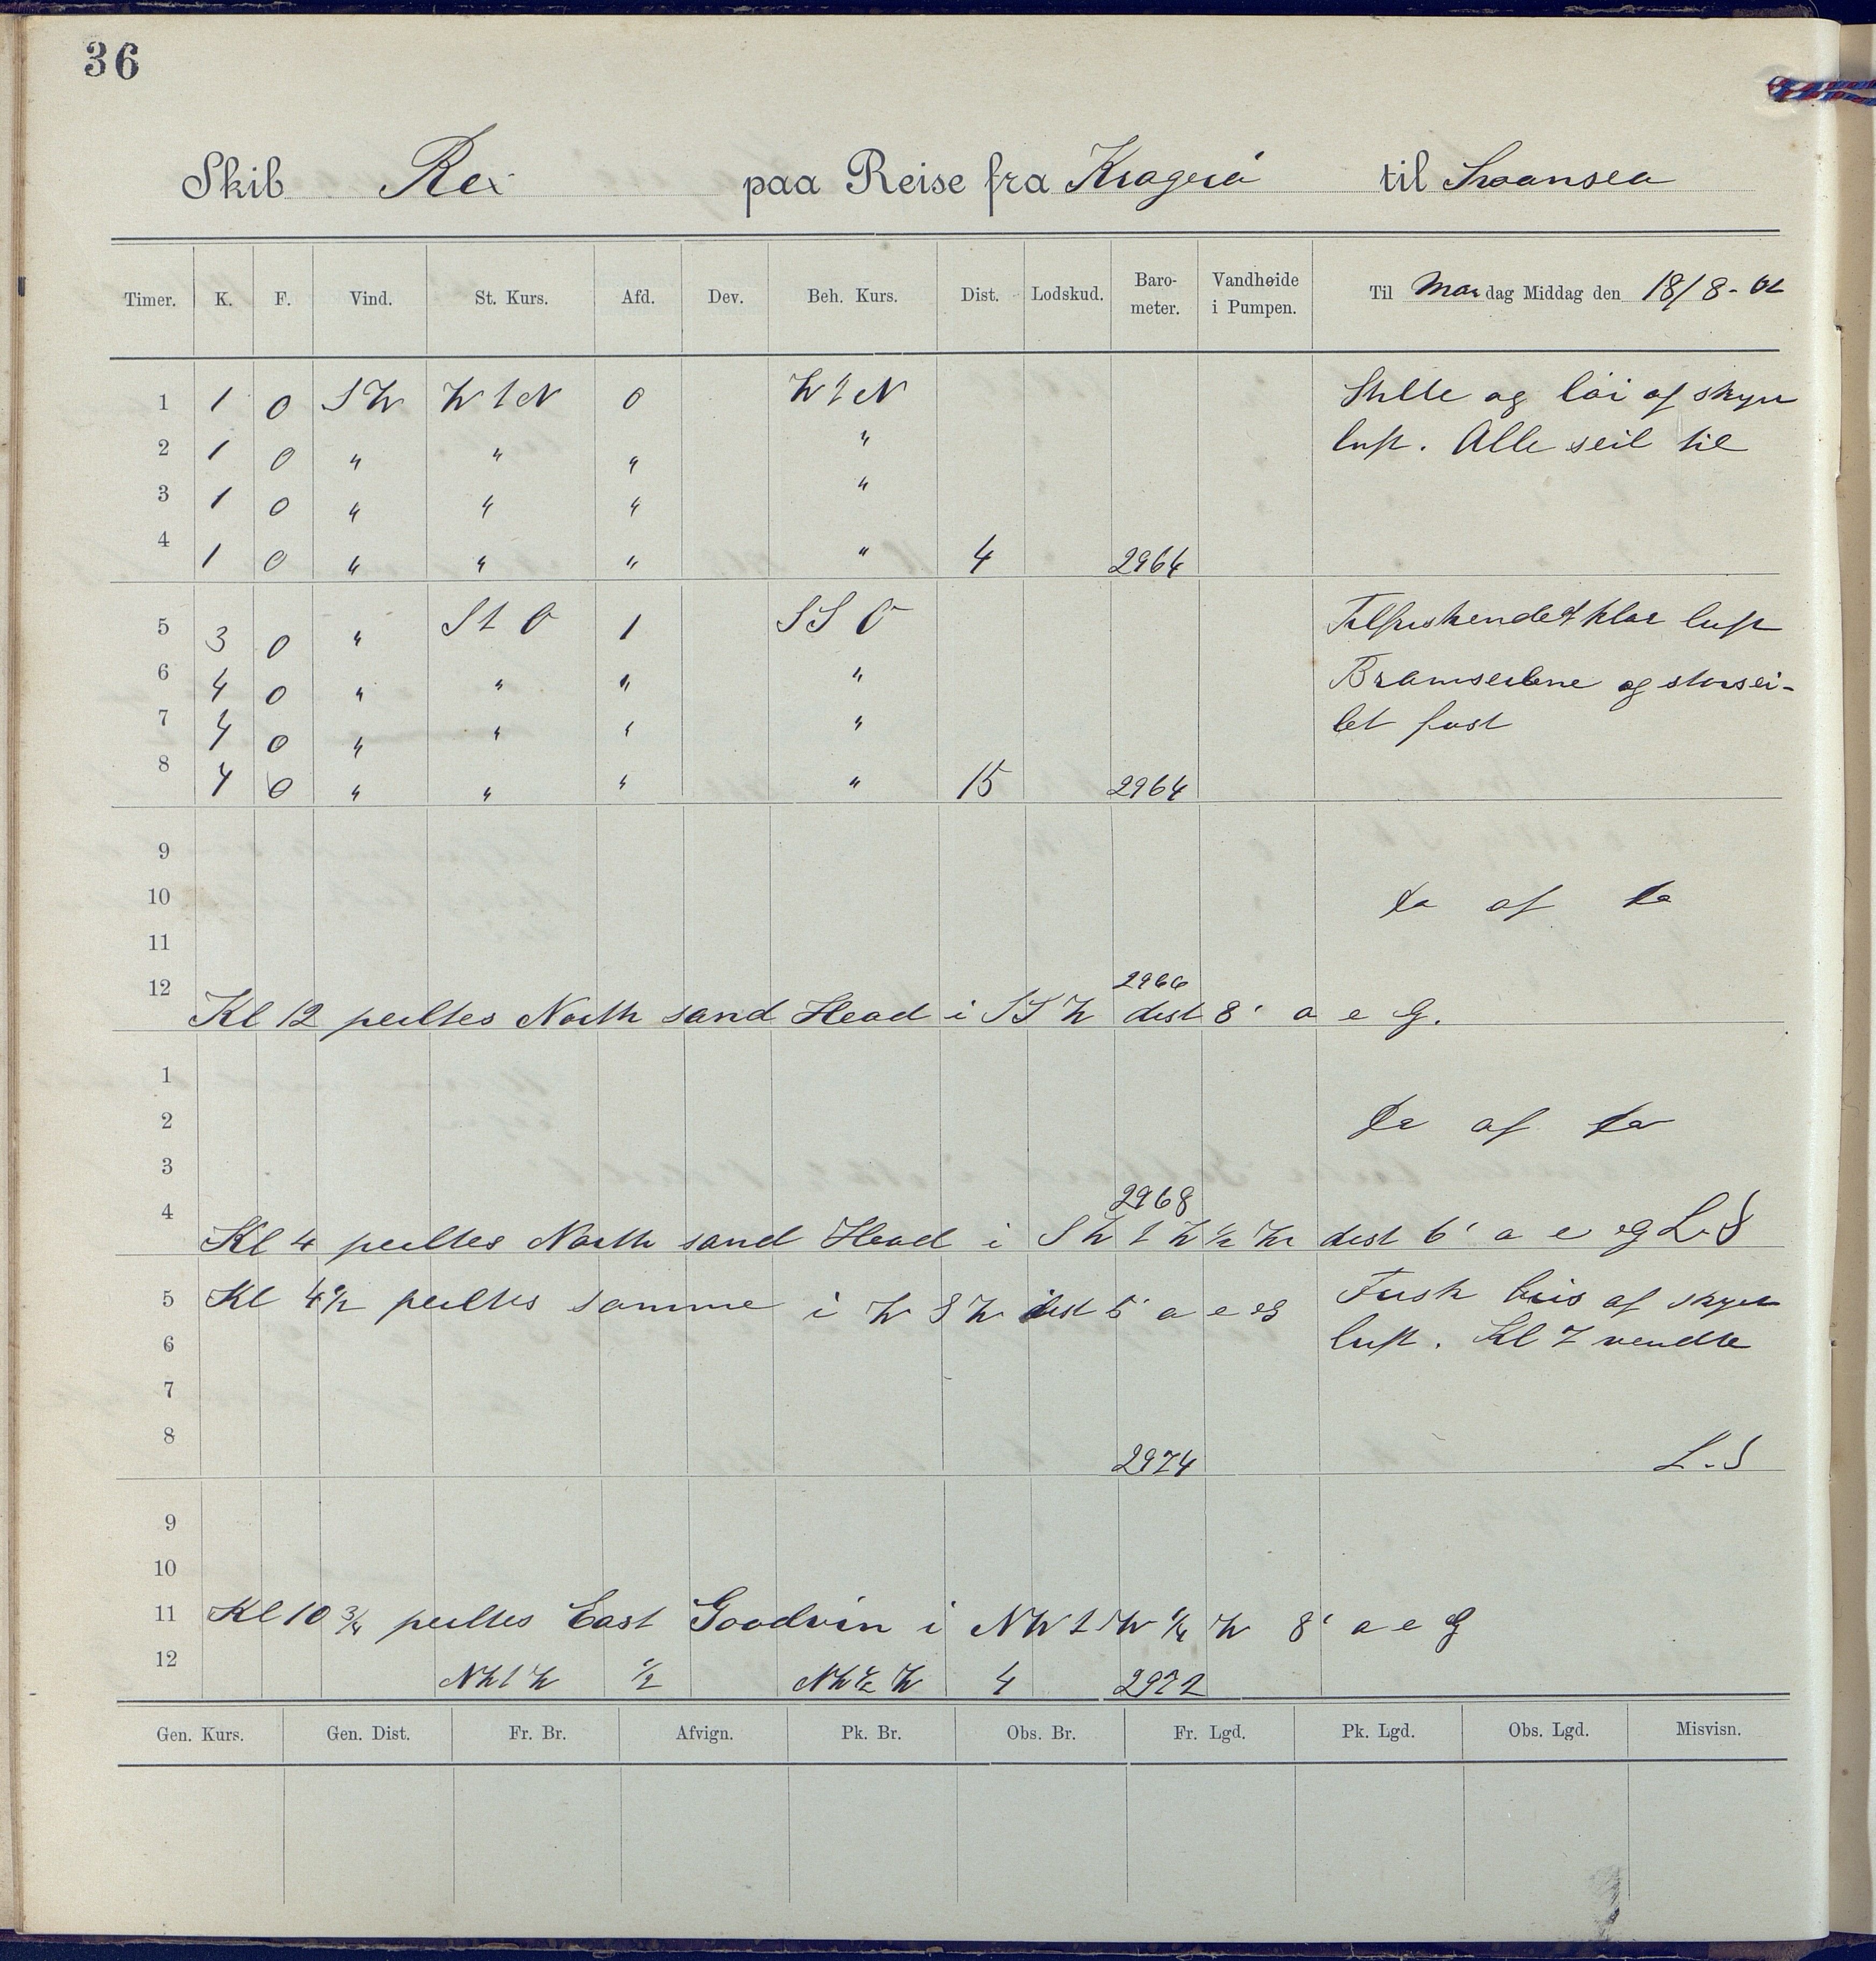 36
Skib Rex paa Reise fra Kragerö til Swansea
Timer. K. F. Vind. St. Kurs. Afd. Dev. Beh. Kurs. Dist. Lodskud. Baro-meter. Vandhøide i Pumpen. Til Mandag Middag den 18/8-02
1 1 0 SW W t N 0 W t N Stille og löi af skyet
2 1 0 " " " " luft. Alle seil til
3 1 0 " " " "
4 1 0 " " " " 4 2964
5 3 0 " S t O 1 SSO Tilfriskende & klar luft
6 4 0 " " " " Bramseilene og storsei-
7 4 0 " " " " let fast
8 4 0 " " " " 15 2964
9
10 Da af Da
11
12 2966
Kl 12 peiltes North sand Head i SSW dist 8' a e G.
1
2 Da af Da
3
4 2968
Kl 4 peiltes North sand Head i SW t W ½ W dist 6' a e G L.S
5 Kl 4½ peiltes samme i WSW dist 5' a e G Frisk bris af skyet
6 luft. Kl 7 vendte
7
8 2974 L.S
9
10
11 Kl 10¾ peiltes East Goodvin i NW t W ¼ W 8' a e G
12 NW t W ½ NW ½ W 4 2972
Gen. Kurs. Gen. Dist. Fr. Br. Afvign. Pk. Br. Obs. Br. Fr. Lgd. Pk. Lgd. Obs. Lgd. Misvisn.